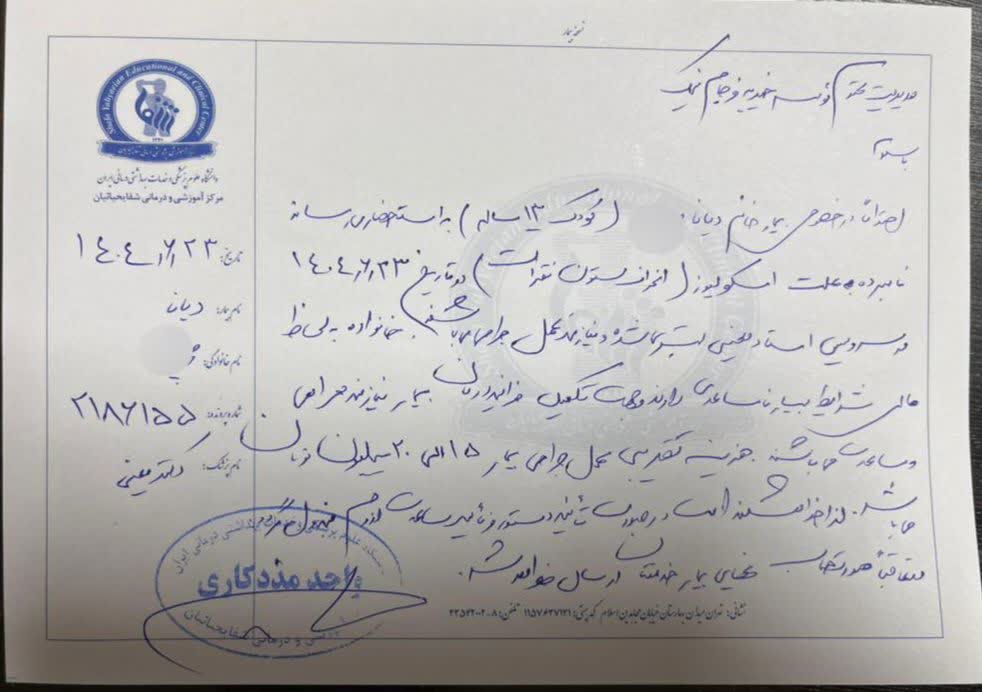 نسخه بیمار
مدیریت محترم موسسه خیریه فرجام نیک
با سلام
احتراماً در خصوص بیمار خانم دیانا (کودک ۱۳ ساله) به استحضار می رساند
نامبرده به علت اسکولیوز (انحراف ستون فقرات) در تاریخ ۱۴۰۴/۶/۲۳
در سرویس استاد معینی بستری شده و نیازمند عمل جراحی می باشند. خانواده به لحاظ
مالی شرایط بسیار نامساعدی دارند و جهت تکمیل فرایند درمان بیمار نیازمند همراهی
و مساعدت می باشند. هزینه تقریبی عمل جراحی بیمار ۱۵ الی ۲۰ میلیون تومان
می باشد. لذا خواهشمند است در صورت تأیید دستور فرمایید مساعدت لازم مبذول گردد
متعاقباً صورتحساب نهایی بیمار خدمتتان ارسال خواهد شد.
Shafa Yahyaeian Educational and Clinical Center
دانشگاه علوم پزشکی و خدمات بهداشتی درمانی ایران
مرکز آموزشی و درمانی شفایحیائیان
تاریخ: ۱۴۰۴/۶/۲۳
نام بیمار: دیانا
نام خانوادگی:
شماره پرونده: ۲۱۸۶۱۵۵
نام پزشک: دکتر معینی
واحد مددکاری
نشانی: تهران میدان بهارستان خیابان مجاهدین اسلام کد پستی: ۱۱۵۷۶۳۷۱۳۱ تلفن: ۸-۳۳۵۴۲۰۰۲